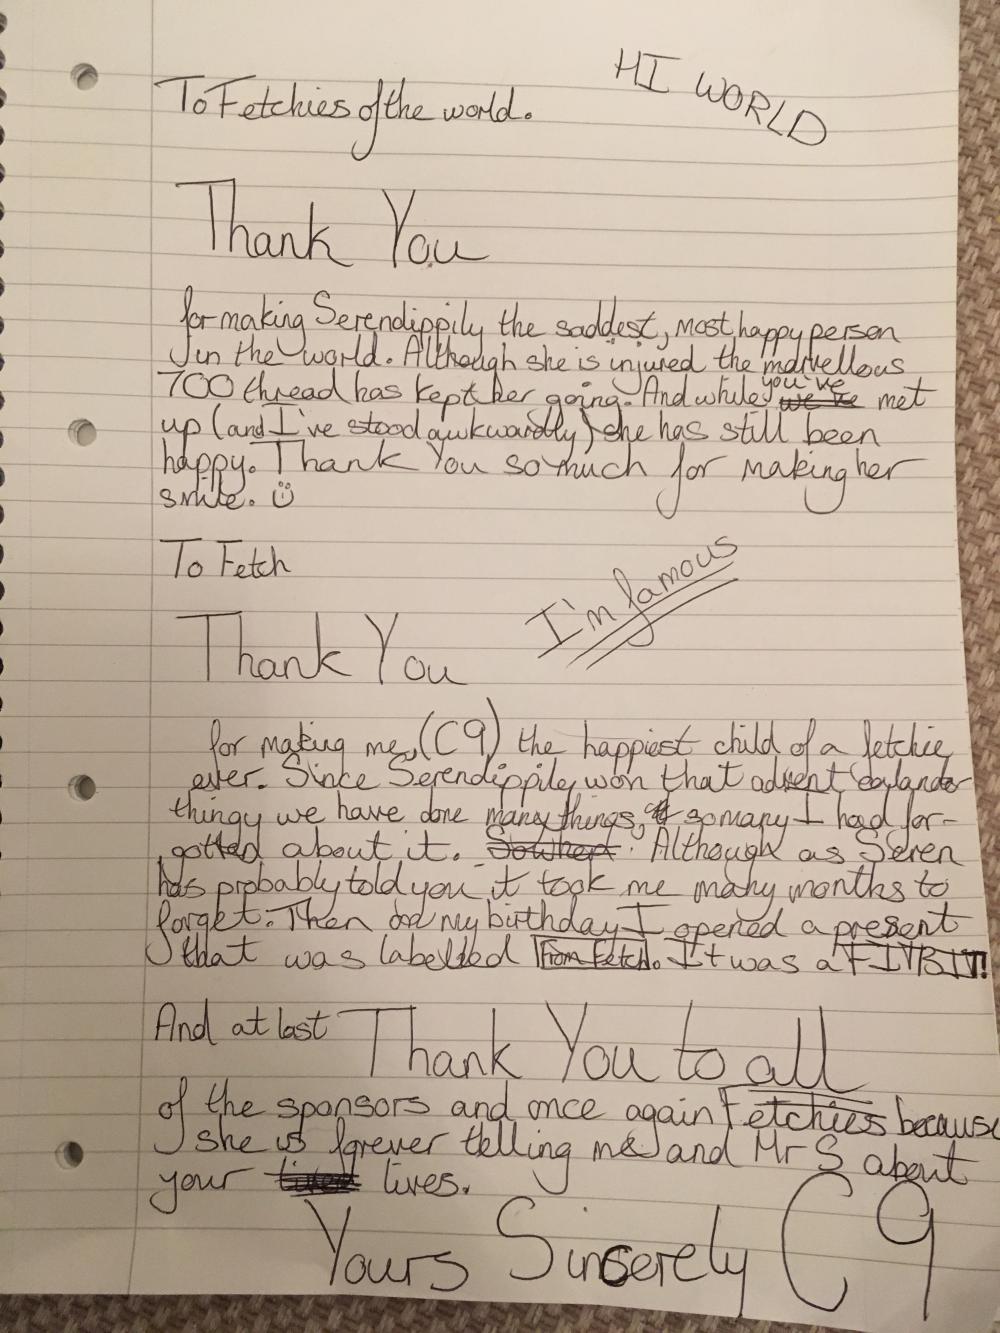 HI WORLD
To Fetchies of the world.
Thank You
for making Serendippily the saddest, most happy person
in the world. Although she is injured the marvellous
700 thread has kept her going. And while you've we've met
up (and I've stood awkwardly) she has still been
happy. Thank You so much for making her
smile. ☺
To Fetch
I'm famous
Thank You
for making me, (C9) the happiest child of a fetchie
ever. Since Serendippily won that advent
thingy we have done many things, so many I had for-
gotted about it. So when. Although as Seren
has probably told you it took me many months to
forget. Then on my birthday I opened a present
that was labelled From Fetch. It was a FITBIT!
And at last Thank You to all
of the sponsors and once again Fetchies because
she is forever telling me and Mr S about
your lives.
Yours Sincerely C9